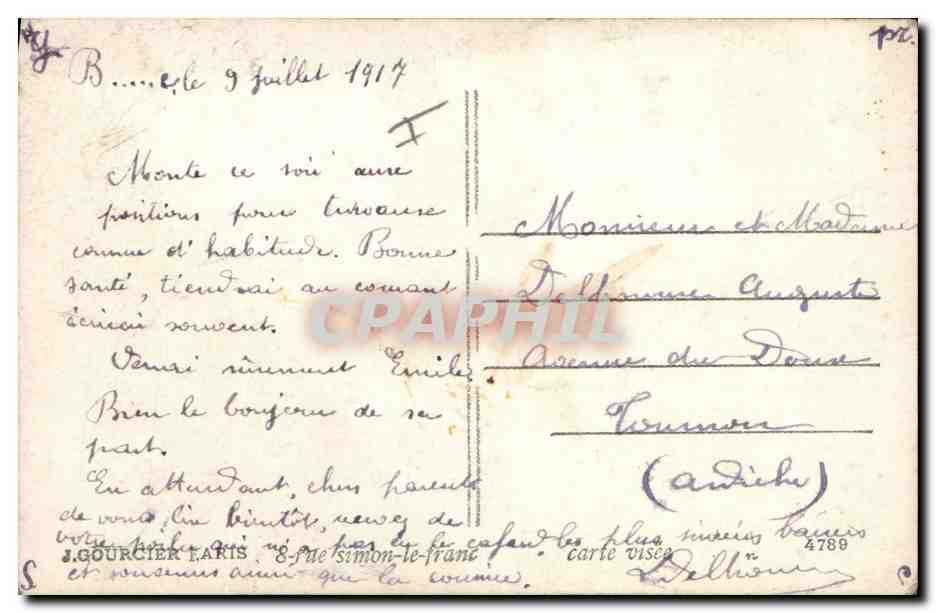 B.....c, le 9 juillet 1917
I
Monte ce soir aux
positions pour turoause
comme d'habitude. Bonne
santé, tiendrai au courant
écrirai souvent.
Verrai sûrement Emile.
Bien le bonjour de sa
part.
En attendant, chers parents
de vous lire bientôt, recevez de
votre poilu qui n'a pas eu le cafard les plus sincères baisers
et souvenirs ainsi que la cousine.
Delhomme
Monsieur et Madame
Delhomme Auguste
Avenue du Doux
Tournon
(Ardèche)
J.GOURCIER PARIS 8-rue simon-le-franc carte visée n 4789
CPAPHIL